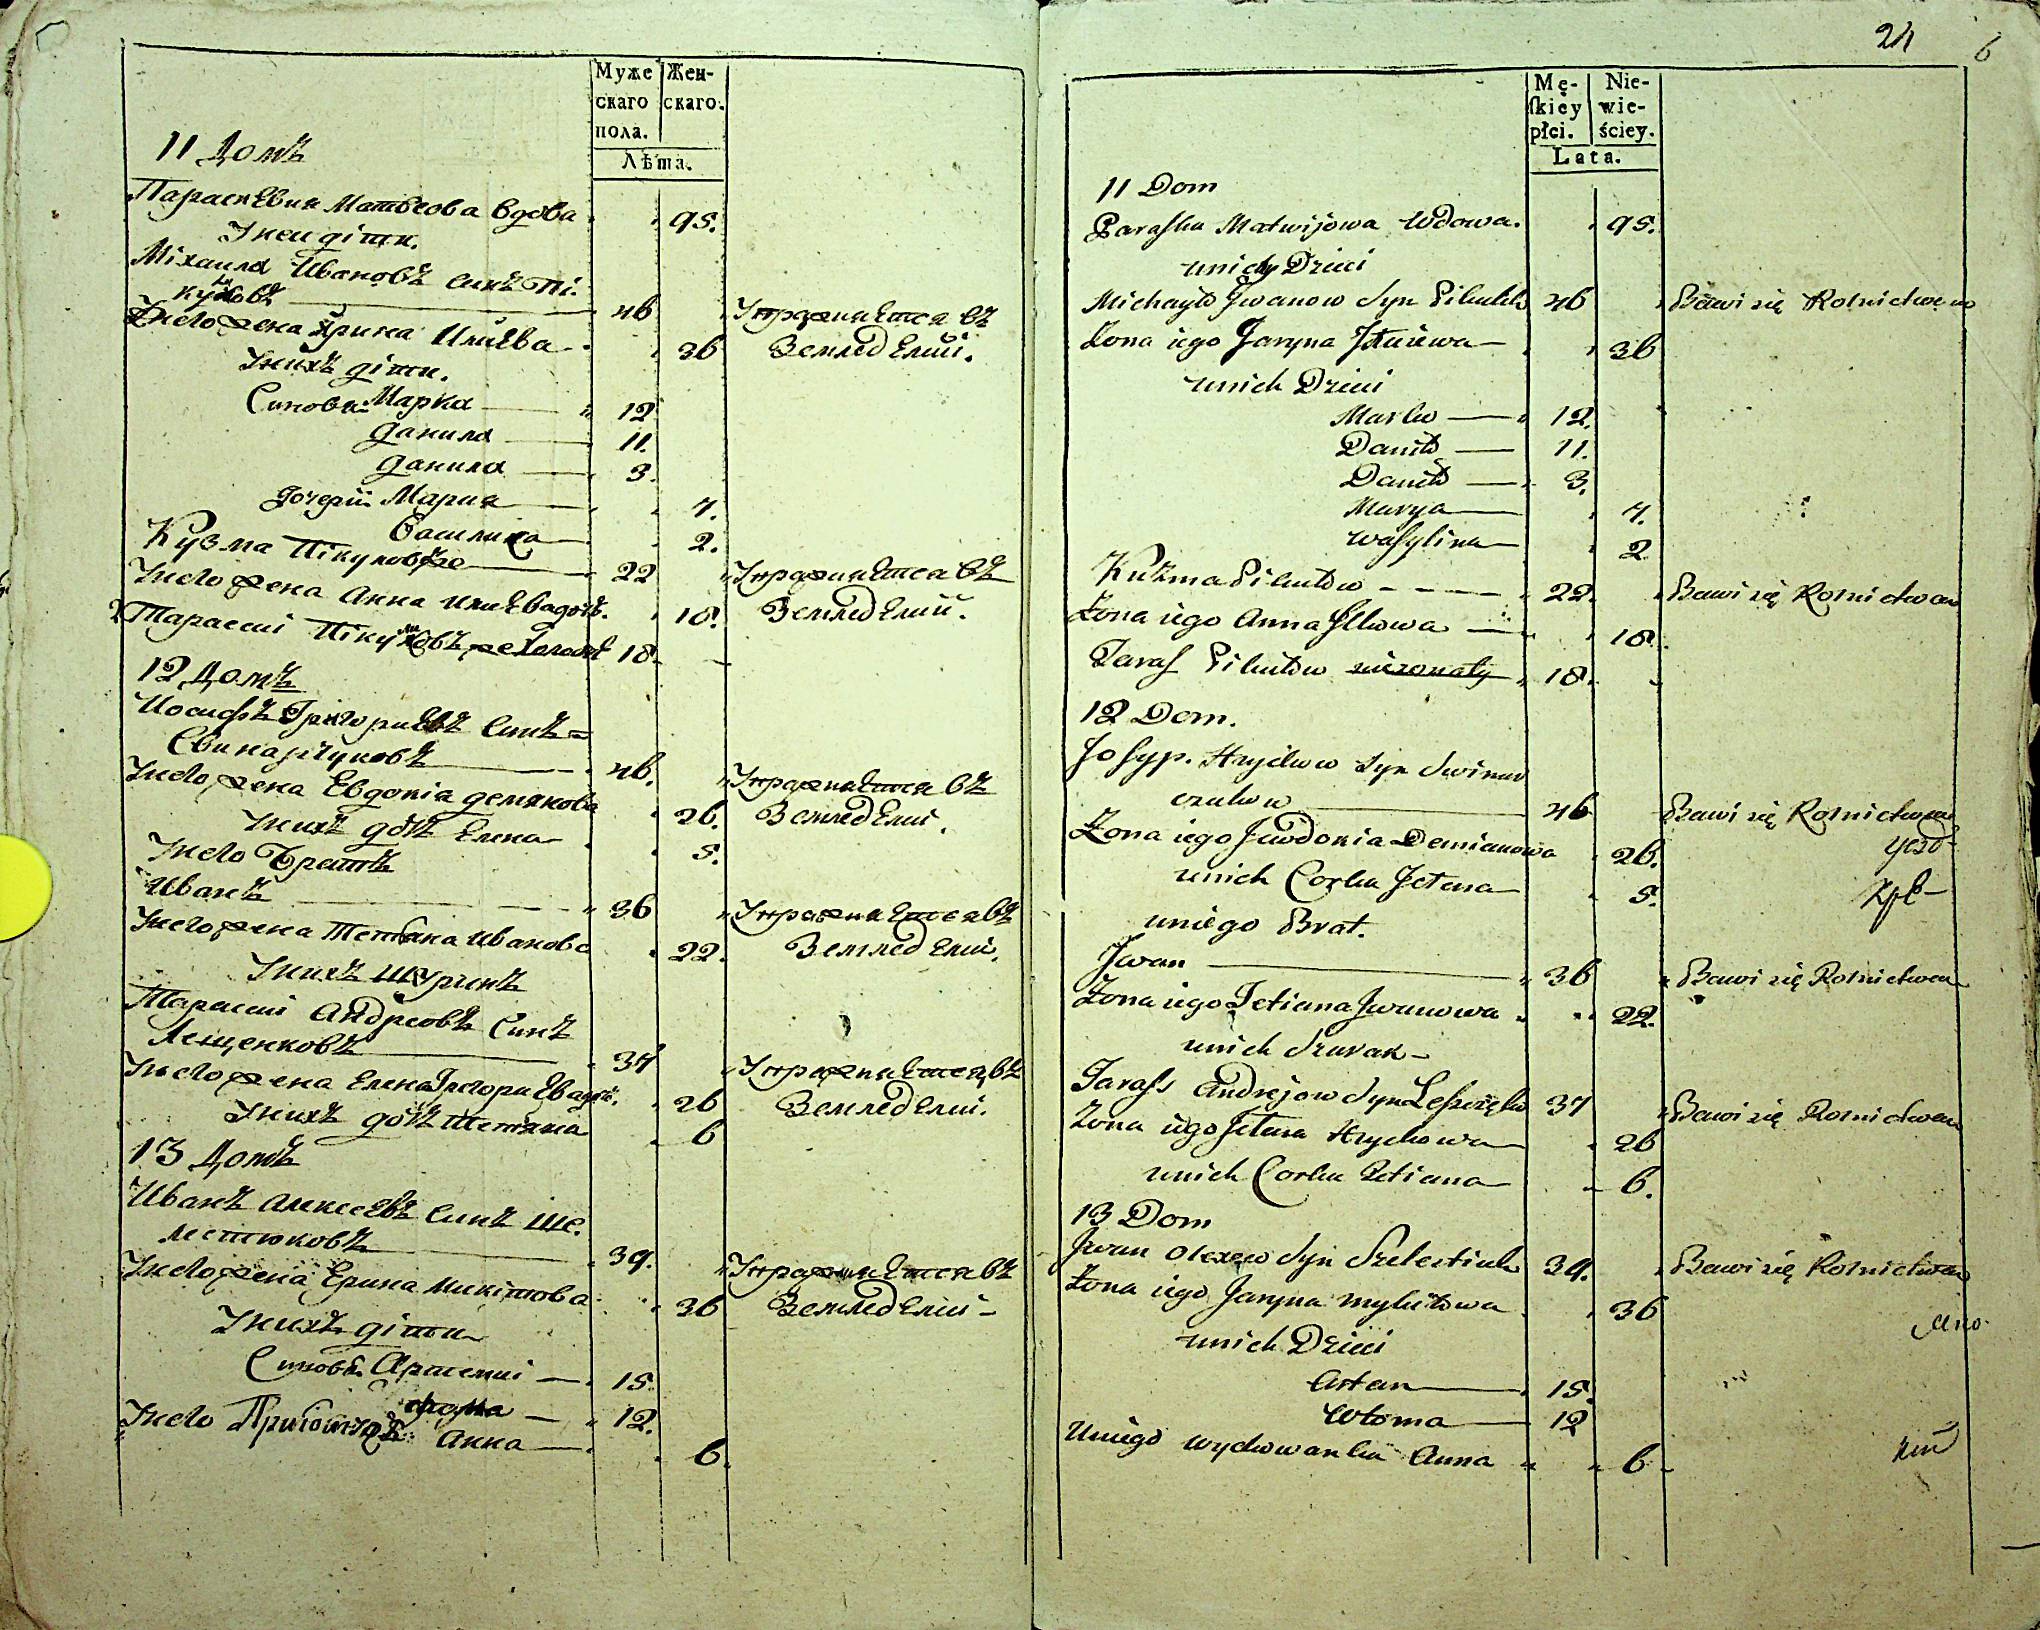 Муже Жен-
скаго скаго.
пола.
Лѣта.
11 Домъ
Параскевия Матвеова вдова 95.
Унеи діти.
Міхаила Ивановъ синъ Пі-
куловъ 46 Упражняется въ
Унего жена Ярина Илиева 36 Земледелиі.
Унихъ діти.
Синови: Марко 12
Данило 11.
Данило 3.
Дочеріи Мария 7.
Василина 2.
Кузма Пікуловъ 22 Упражняется въ
Унего жена Анна Илиева доч. 18. Земледелиі.
Тарасиі Пікуловъ 18.
12 Домъ
Иосифъ Григориевъ синъ
Свинарчуковъ 46. Упражняется въ
Унего жена Евдокіа Демянова 26. Земледелиі.
Унихъ доч Елена 5.
Унего Братъ
Иванъ 36 Упражняется въ
Унего жена Тетяна Иванова 22. Земледелиі.
Унихъ Шуринъ
Тарасиі Андреовъ Синъ
Лещенковъ 37 Упражняется въ
Унего жена Елена Григориева доч. 26 Земледелиі.
Унихъ доч Тетяна 6
13 Домъ
Иванъ Алексеевъ Синъ Ше-
лестюковъ 39. Упражняется въ
Унего жена Ерина Микитова 36 Земледелиі
Унихъ діти
Синови Артемиі 15.
Фома 12.
Унего Анна 6.
24 6
Mę- Nie-
ſkiey wie-
płci. ściey.
Lata.
11 Dom
Paraſka Matwijowa Wdowa. 95.
unich Dzieci
Michayło Jwanow Syn Pikułow 46 Bawi się Rolnictwem
Zona iego Jaryna Jliiewa 36
unich Dzieci
Marko 12.
Daniło 11.
Daniło 3.
Marya 7.
Waſylina 2
Kuźma Pikułow 22. Bawi się Rolnictwem
Zona iego Anna Jlkowa 18.
Taras Pikułow niezonaty 18.
12 Dom.
Joſyp. Hryckow Syn Swinar
czukow 46 Bawi się Rolnictwem
Zona iego Juwdokia Demianowa 26.
unich Corka Jełena 5.
uniego Brat.
Jwan 36 Bawi się Rolnictwem
Zona iego Tetiana Jwanowa 22.
unich Szurak
Taraſs Andrejow Syn Leſzczęko 37 Bawi się Rolnictwem
Zona iego Jełena Hryckowa 26
unich Corka Tetiana 6.
13 Dom
Jwan Olexow Syn Szelestiuk 39. Bawi się Rolnictwem
Zona iego Jaryna Mykitowa 36
unich Dzieci
Artem 15.
Wtoma 12
Uniego wychowanka Anna 6